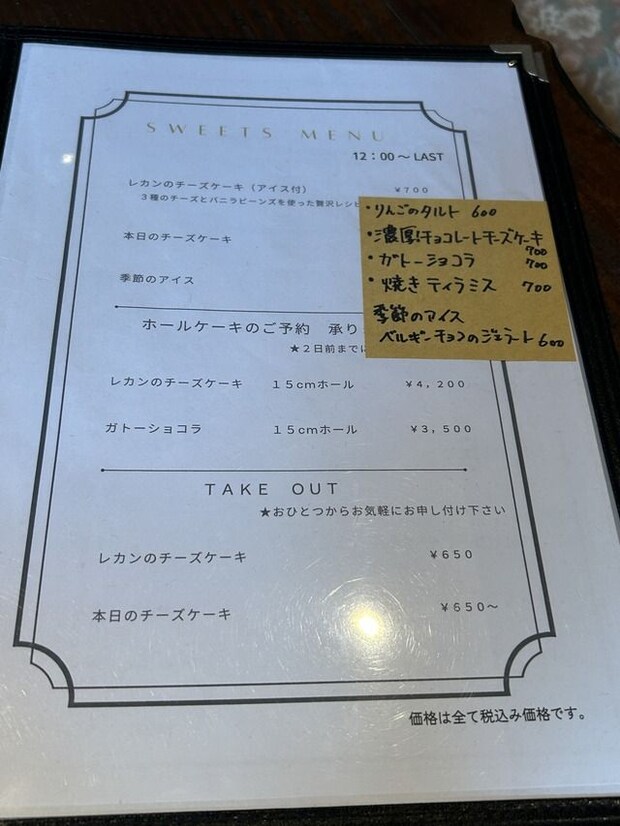 SWEETS MENU
12：00～LAST
レカンのチーズケーキ（アイス付） ¥700
３種のチーズとバニラビーンズを使った贅沢レシピ
本日のチーズケーキ
季節のアイス
・りんごのタルト 600
・濃厚！チョコレートチーズケーキ 700
・ガトーショコラ 700
・焼きティラミス 700
季節のアイス
ベルギーチョコのジェラート 600
ホールケーキのご予約 承り
★２日前までに
レカンのチーズケーキ １５cmホール ¥４，２００
ガトーショコラ １５cmホール ¥３，５００
TAKE OUT
★おひとつからお気軽にお申し付け下さい
レカンのチーズケーキ ¥６５０
本日のチーズケーキ ¥６５０～
価格は全て税込み価格です。